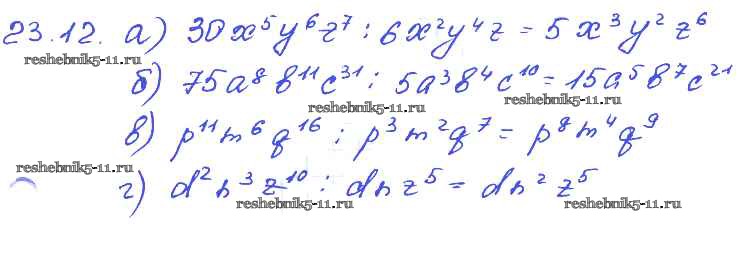 23.12. а) 30x⁵y⁶z⁷ : 6x²y⁴z = 5x³y²z⁶
reshebnik5-11.ru
б) 75a⁸b¹¹c³¹ : 5a³b⁴c¹⁰ = 15a⁵b⁷c²¹
reshebnik5-11.ru reshebnik5-11.ru
в) p¹¹m⁶q¹⁶ : p³m²q⁷ = p⁸m⁴q⁹
reshebnik5-11.ru
г) d²n³z¹⁰ : dnz⁵ = dn²z⁵
reshebnik5-11.ru reshebnik5-11.ru